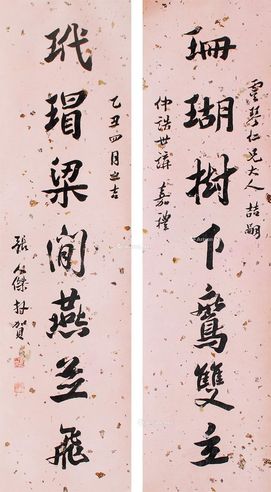 珊瑚樹下鴛雙立
玳瑁梁間燕並飛
雲琴仁兄大人 喆嗣
仲誥世講嘉禮
乙丑四月之吉
張人傑拜賀